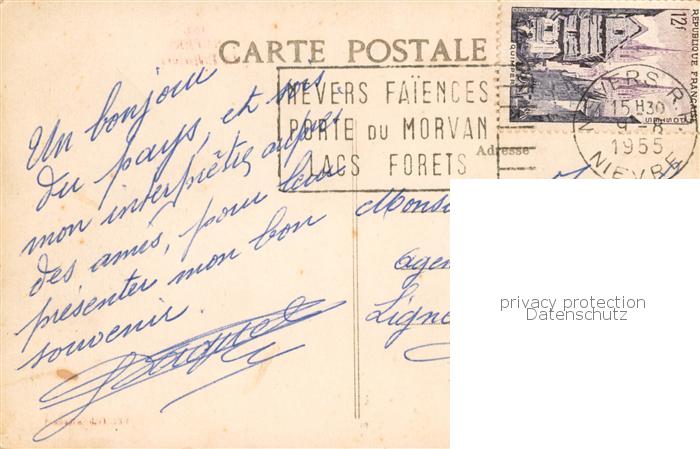 CARTE POSTALE
12f
REPUBLIQUE FRANÇAISE
QUIMPER
POSTES
NEVERS R.P.
15 H30
9-8
1955
NIEVRE
NEVERS FAÏENCES
PORTE DU MORVAN
LACS FORETS
Adresse
Un bonjour
du pays, et sois
mon interprète auprès
des amis, pour leur
présenter mon bon
souvenir.
Monsi
agen
Ligne
privacy protection
Datenschutz